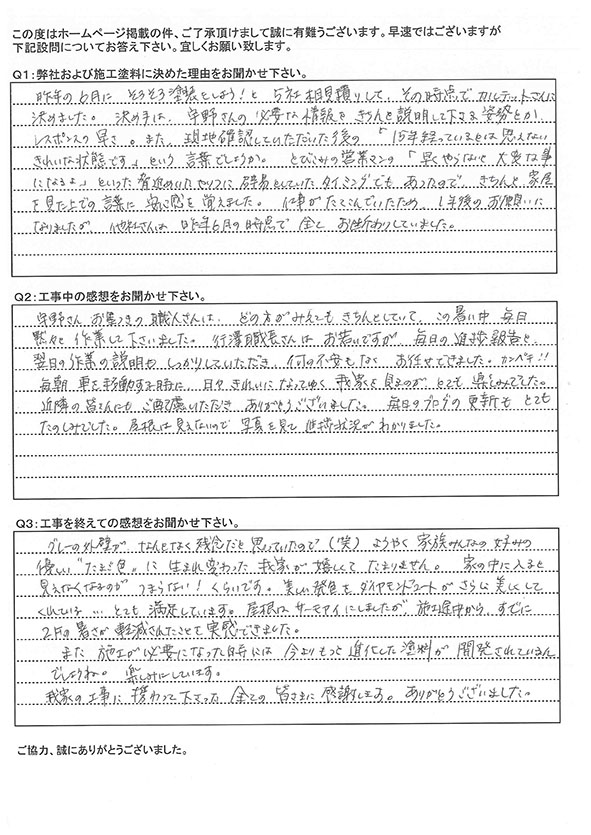 この度はホームページ掲載の件、ご了承頂けまして誠に有難うございます。早速ではございますが
下記設問についてお答え下さい。宜しくお願い致します。
Q1：弊社および施工塗料に決めた理由をお聞かせ下さい。
昨年の6月に そろそろ塗装をしよう！と 5社相見積りして、その時点でカルテットさんに
決めました。 決め手は、宇野さんの 必要な情報を きちんと説明して下さる姿勢とか、
レスポンスの早さ。また、現地確認していただいた後の 「15年経っているとは思えない
きれいな状態です」という 言葉でしょうか。 とびこみの営業マンの 「早くやらないと大変な事
になるよ」といった脅迫めいたやりクに辟易としていたタイミングでもあったので きちんと 家屋
を見た上での言葉に 安心感を 覚えました。 仕事がたてこんでいたため、1年後のお願いに
なりましたが、他社さんは 昨年6月の時点で 全て お断わりしていました。
Q2：工事中の感想をお聞かせ下さい。
宇野さん お墨つきの 職人さんは、どの方がみえても きちんとしていて、この暑い中 毎日
黙々と 作業して下さいました。 行澤職長さんは お若いですが、毎日の進捗報告と、
翌日の作業の説明も しっかりしていただき、何の不安もなく お任せできました。カンペキ!!
毎朝 車を移動する時に、日々きれいになってゆく 我家を見るのが、とても 楽しみでした。
近隣の皆さんにも ご配慮いただき ありがとうございました。 毎日のブログの更新も とても
たのしみでした。屋根は見えないので 写真を見て 進捗状況がわかりました。
Q3：工事を終えての感想をお聞かせ下さい。
グレーの外壁が なんとなく残念だと思っていたので（笑）ようやく 家族みんなの好みの
優しい "たまご色" に 生まれ変わった 我家が嬉しくて たまりません。 家の中に入ると
見えなくなるのが つまらない！くらいです。 美しい発色を ダイヤモンドコートが さらに美しくして
くれている … とても 満足しています。屋根は サーモアイにしましたが 施工途中から、すでに
2Fの暑さが 軽減されたことを実感できました。
また 施工が必要になった時には 今よりもっと 進化した塗料が 開発されているん
でしょうね。 楽しみにしています。
我家の工事に 携わって下さった 全ての 皆さまに 感謝します。 ありがとうございました。
ご協力、誠にありがとうございました。